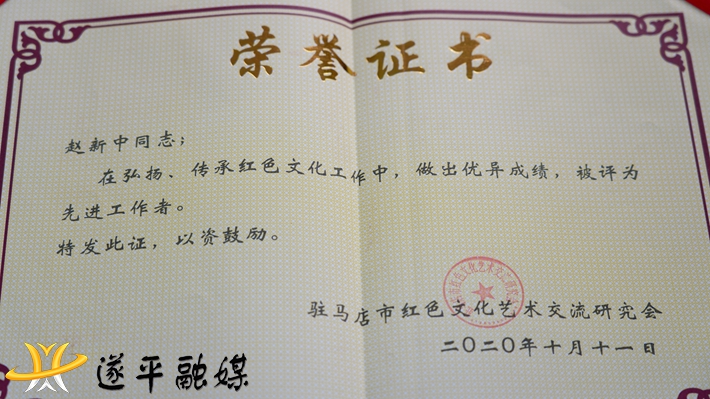 荣誉证书
赵新中同志；
在弘扬、传承红色文化工作中，做出优异成绩，被评为
先进工作者。
特发此证，以资鼓励。
驻马店市红色文化艺术交流研究会
二〇二〇年十月十一日
遂平融媒